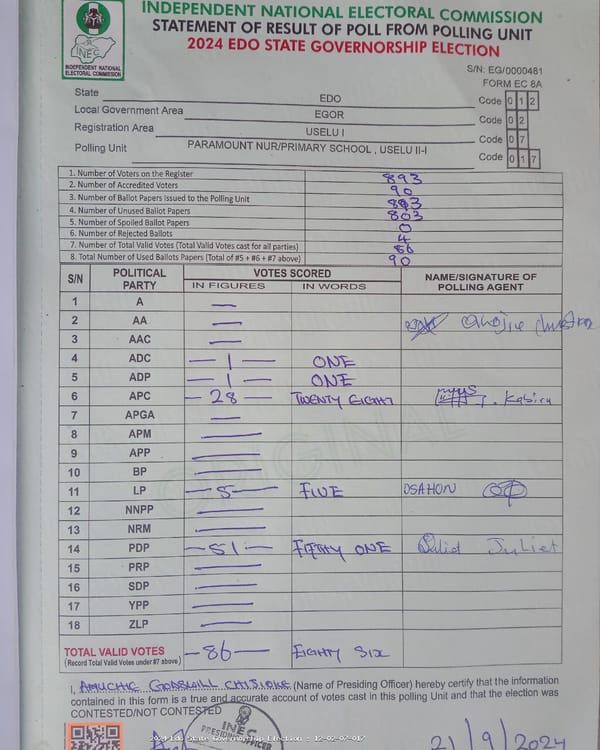 INDEPENDENT NATIONAL ELECTORAL COMMISSION
STATEMENT OF RESULT OF POLL FROM POLLING UNIT
2024 EDO STATE GOVERNORSHIP ELECTION
INEC
INDEPENDENT NATIONAL
ELECTORAL COMMISSION
S/N: EG/0000481
FORM EC 8A
State EDO Code 0 1 2
Local Government Area EGOR Code 0 2
Registration Area USELU I Code 0 7
Polling Unit PARAMOUNT NUR/PRIMARY SCHOOL , USELU II-I Code 0 1 7
1. Number of Voters on the Register 893
2. Number of Accredited Voters 90
3. Number of Ballot Papers Issued to the Polling Unit 893
4. Number of Unused Ballot Papers 803
5. Number of Spoiled Ballot Papers 0
6. Number of Rejected Ballots 4
7. Number of Total Valid Votes (Total Valid Votes cast for all parties) 86
8. Total Number of Used Ballots Papers (Total of #5 + #6 + #7 above) 90
S/N POLITICAL PARTY VOTES SCORED NAME/SIGNATURE OF POLLING AGENT
IN FIGURES IN WORDS
1 A —
2 AA —
3 AAC —
4 ADC — 1 — ONE
5 ADP — 1 — ONE
6 APC — 28 — TWENTY EIGHT Kabiru
7 APGA —
8 APM —
9 APP —
10 BP —
11 LP — 5 — FIVE OSAHON
12 NNPP —
13 NRM —
14 PDP — 51 — FIFTY ONE Juliet
15 PRP —
16 SDP —
17 YPP —
18 ZLP —
TOTAL VALID VOTES — 86 — EIGHTY SIX
(Record Total Valid Votes under #7 above)
ORIGINAL
I, GODSWILL (Name of Presiding Officer) hereby certify that the information
contained in this form is a true and accurate account of votes cast in this polling unit and that the election was
CONTESTED/NOT CONTESTED
INEC
PRESIDING OFFICER
2024 Edo State Governorship Election : 12-02-07-017
21/9/2024